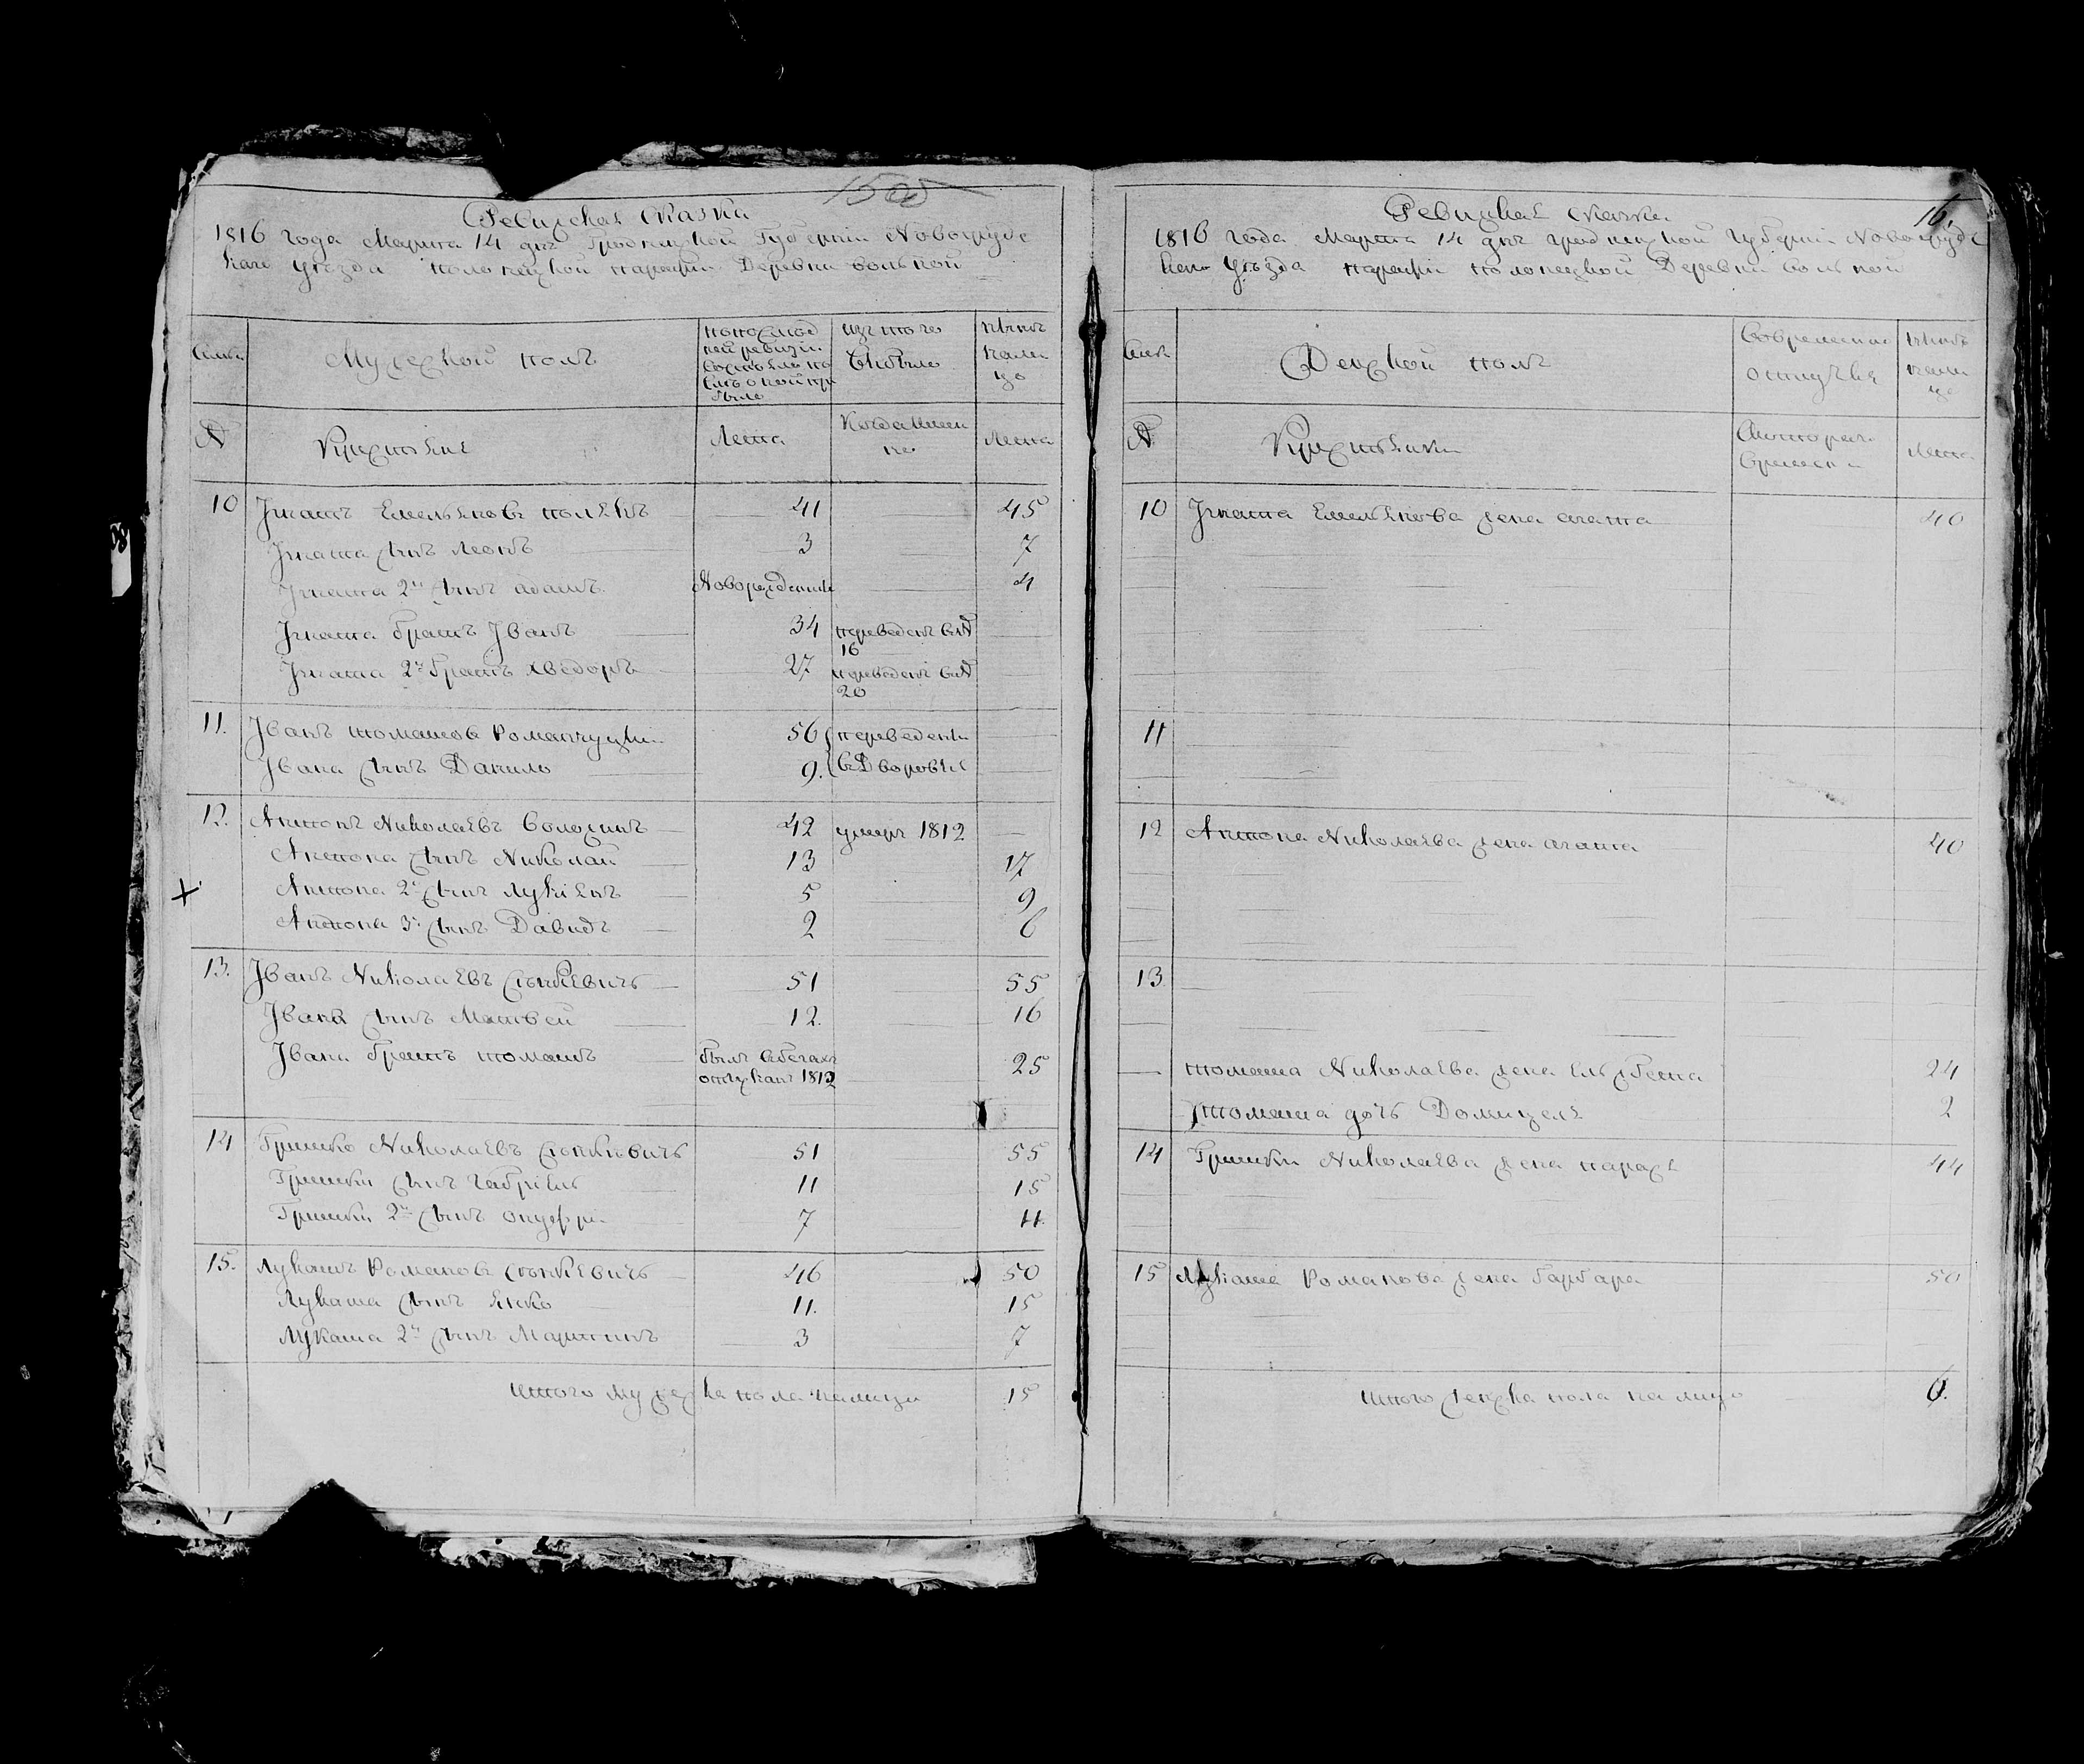 1500
Ревизская сказка
1816 года Марта 14 дня Гродненской Губернии Новогрудс
каго уезда Полонецкой парафии Деревни вольной
Семьи
Мужеской полъ
По последней ревизии состояло и после оной прибыло
Изъ того выбыло
Ныне налицо
№
Крестьяне
Лета
Когда именно
Лета
10 Iгнатъ Емельяновъ полякъ 41 45
Iгната сынъ Леонъ 3 7
Iгната 2й сынъ адамъ Новорожденный 4
Iгната братъ Iванъ 34 переведенъ въ №
16
Iгната 2й братъ хведоръ 27 переведенъ въ №
20
11. Iванъ томашовъ Романчуцки 56 переведены
Iвана сынъ Данило 9. в Дворовые
12. Антонъ Николаевъ 42 умеръ 1812
Антона сынъ Николай 13 17
Антона 2й сынъ Лукіянъ 5 9
Антона 3й сынъ Давидъ 2 6
13. Iванъ Николаевъ 51 55
Iвана сынъ Матвей 12. 16
Iвана братъ томашъ былъ в бегахъ 25
отысканъ 1812
14 Гришко Николаевъ 51 55
Гришки сынъ габріель 11 15
Гришки 2й сынъ онуфри 7 11
15. Лукашъ Романовъ 46 50
Лукаша сынъ янко 11. 15
Лукаша 2й сынъ Мартинъ 3 7
Итого мужеска пола налицо 15
16.
Ревизская сказка
1816 года Марта 14 дня гродненской губернии Новогрудс
каго уезда парафии полонецкой Деревни вольной
Семьи
Женской полъ
Во временной отлучке
Ныне налицо
№
Крестьянки
С которого времени
Лета
10 Iгната Емельянова жена агата 40
11
12 Антона Николаева жена агата 40
13
томаша Николаева жена ельжбета 24
томаша дочь Домицеля 2
14 Гришки Николаева жена парася 44
15 Лукаша Романова жена барбара 50
Итого женска пола на лицо 6.